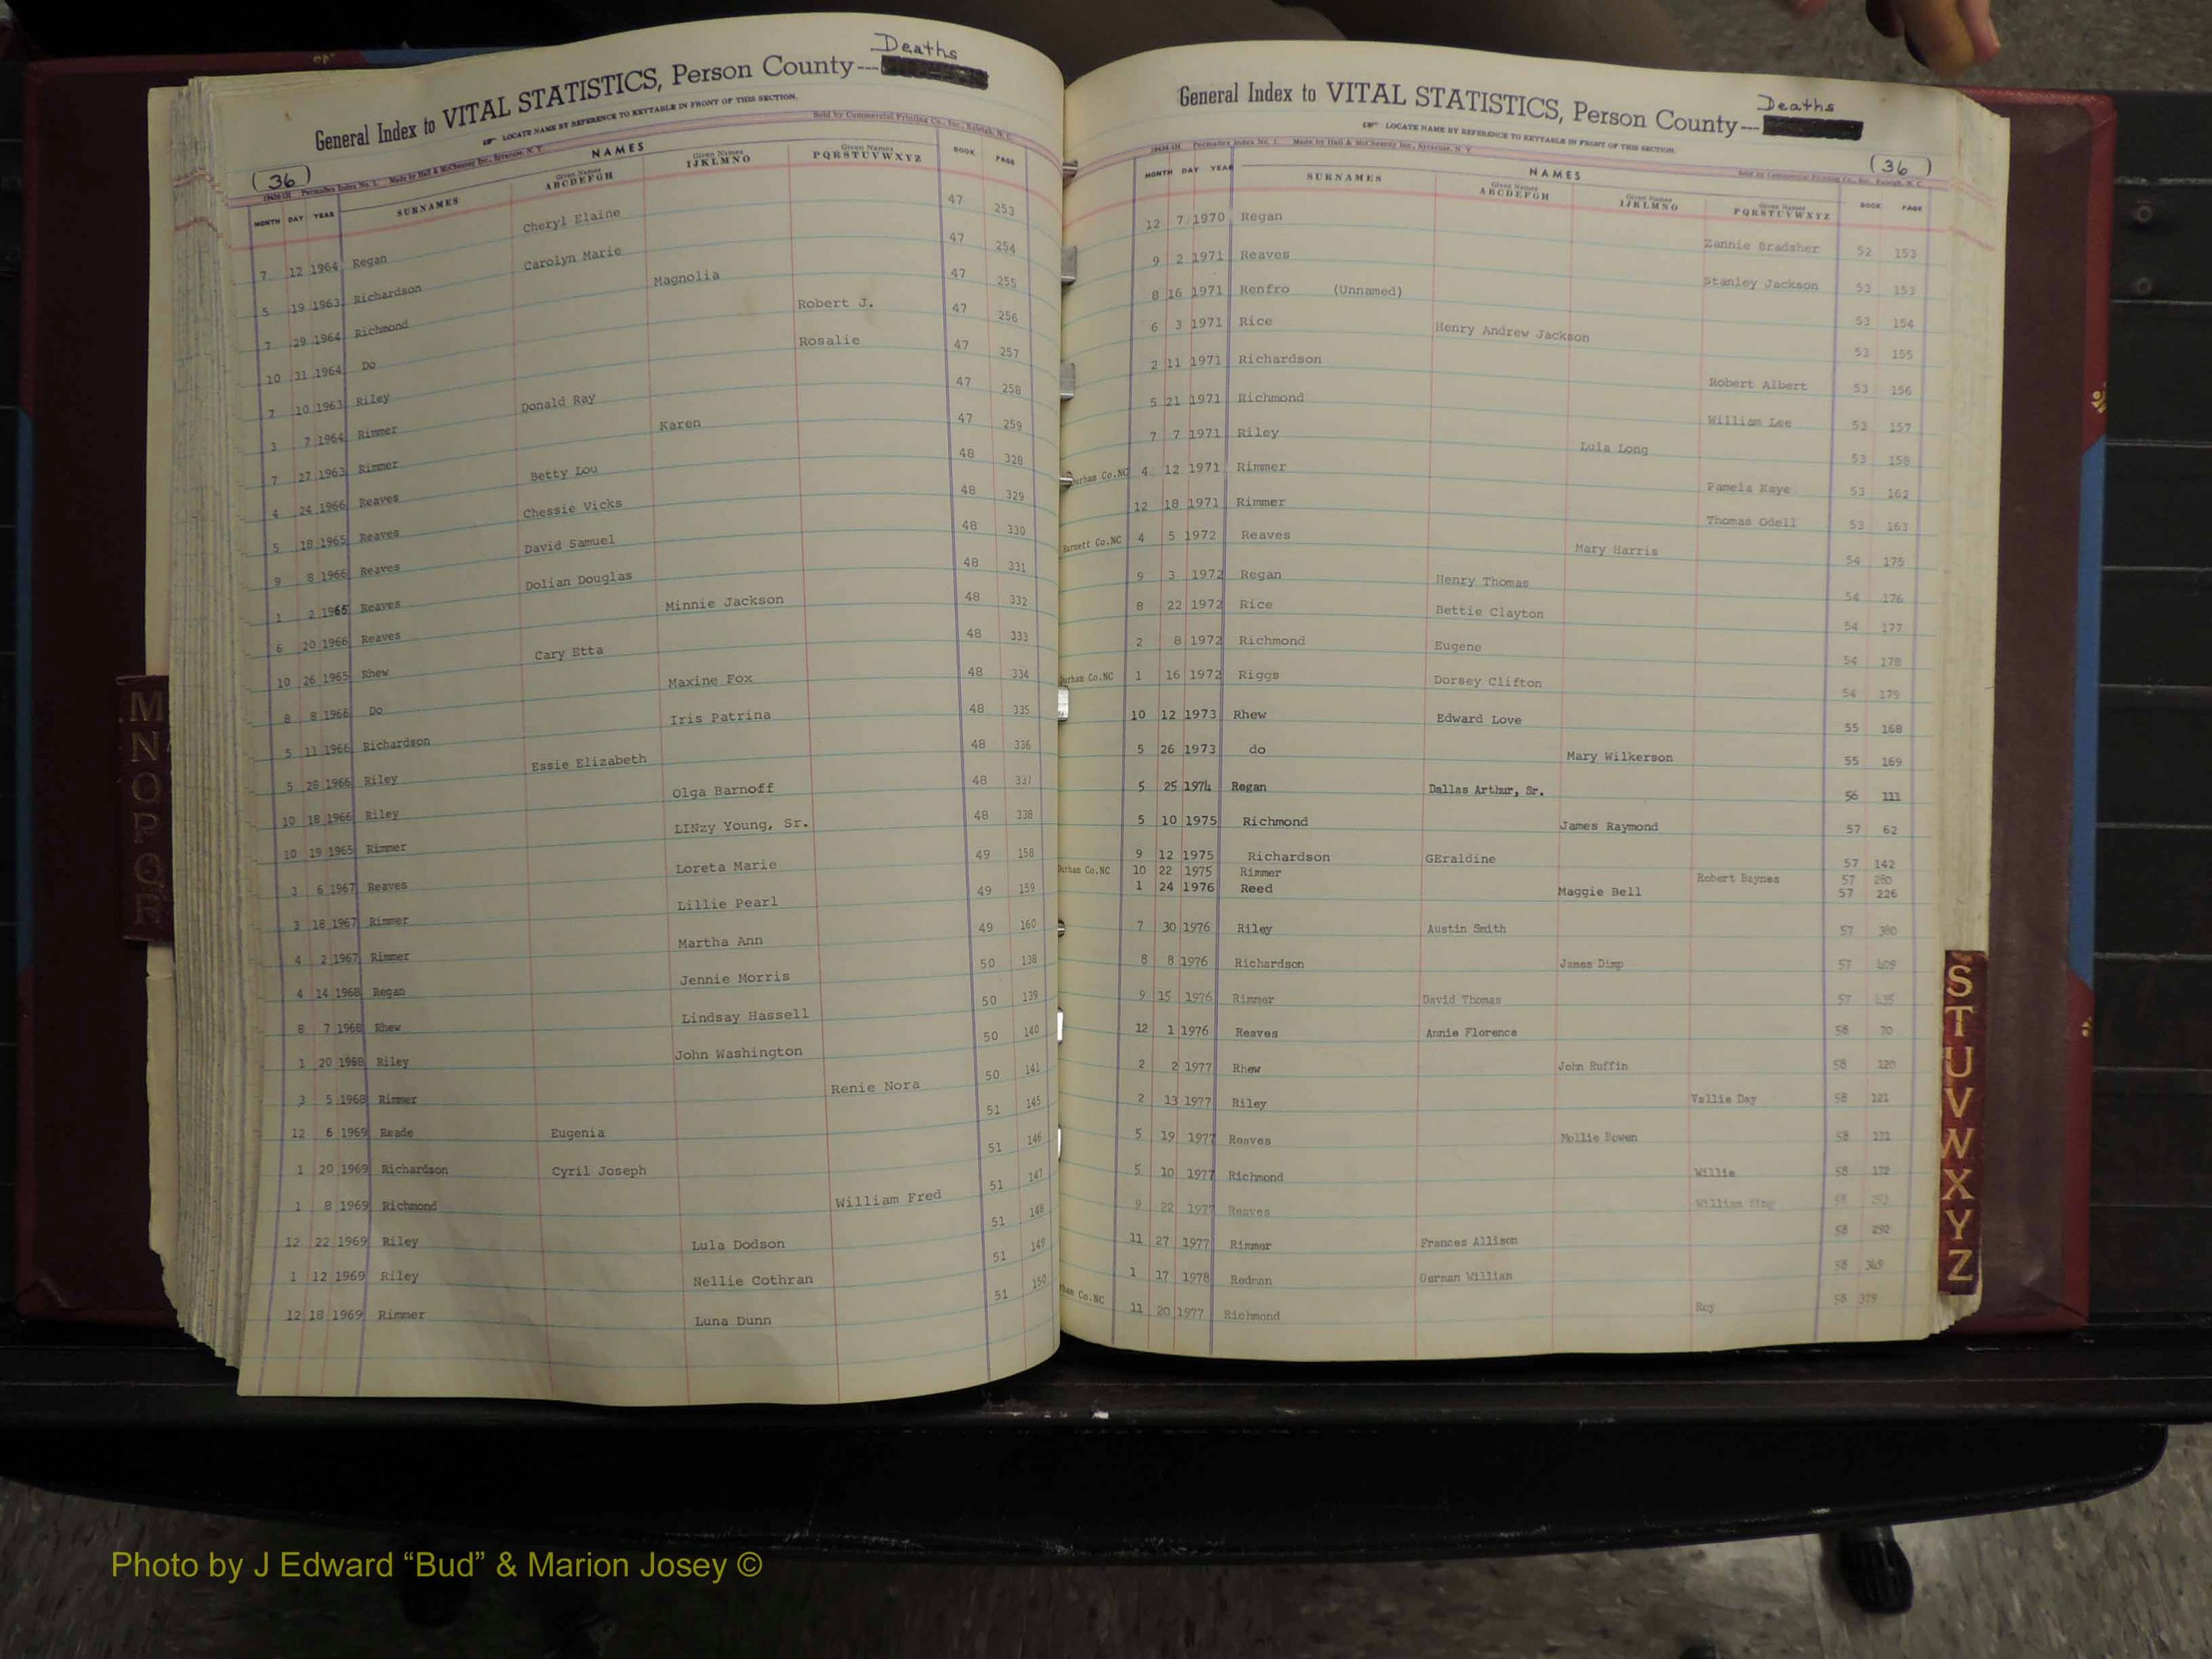 Deaths
General Index to VITAL STATISTICS, Person County---
LOCATE NAME BY REFERENCE TO KEYTABLE IN FRONT OF THIS SECTION.
Sold by Commercial Printing Co., Inc., Raleigh, N. C.
(36)
Permaflex Index No. 1. Made by Hall & McChesney Inc., Syracuse, N. Y.
NAMES
MONTH DAY YEAR SURNAMES Given Names ABCDEFGH Given Names IJKLMNO Given Names PQRSTUVWXYZ BOOK PAGE
7 12 1964 Regan Cheryl Elaine 47 253
5 19 1963 Richardson Carolyn Marie 47 254
7 29 1964 Richmond Magnolia 47 255
10 31 1964 Do Robert J. 47 256
7 10 1963 Riley Rosalie 47 257
3 7 1964 Rimmer Donald Ray 47 258
7 27 1963 Rimmer Karen 47 259
4 24 1966 Reaves Betty Lou 48 328
5 18 1965 Reaves Chessie Vicks 48 329
9 8 1966 Reaves David Samuel 48 330
1 2 1965 Reaves Dolian Douglas 48 331
6 20 1966 Reaves Minnie Jackson 48 332
10 26 1965 Rhew Cary Etta 48 333
8 8 1966 Do Maxine Fox 48 334
5 11 1966 Richardson Iris Patrina 48 335
5 28 1966 Riley Essie Elizabeth 48 336
10 18 1966 Riley Olga Barnoff 48 337
10 19 1965 Rimmer LINzy Young, Sr. 48 338
3 6 1967 Reaves Loreta Marie 49 158
3 18 1967 Rimmer Lillie Pearl 49 159
4 2 1967 Rimmer Martha Ann 49 160
4 14 1968 Regan Jennie Morris 50 138
8 7 1968 Rhew Lindsay Hassell 50 139
1 20 1968 Riley John Washington 50 140
3 5 1968 Rimmer Renie Nora 50 141
12 6 1969 Reade Eugenia 51 145
1 20 1969 Richardson Cyril Joseph 51 146
1 8 1969 Richmond William Fred 51 147
12 22 1969 Riley Lula Dodson 51 148
1 12 1969 Riley Nellie Cothran 51 149
12 18 1969 Rimmer Luna Dunn 51 150
Deaths
General Index to VITAL STATISTICS, Person County---
LOCATE NAME BY REFERENCE TO KEYTABLE IN FRONT OF THIS SECTION.
(36)
Permaflex Index No. 1. Made by Hall & McChesney Inc., Syracuse, N. Y.
Sold by Commercial Printing Co., Inc., Raleigh, N. C.
NAMES
MONTH DAY YEAR SURNAMES Given Names ABCDEFGH Given Names IJKLMNO Given Names PQRSTUVWXYZ BOOK PAGE
12 7 1970 Regan Zannie Bradsher 52 153
9 2 1971 Reaves Stanley Jackson 53 153
8 16 1971 Renfro (Unnamed) 53 154
6 3 1971 Rice Henry Andrew Jackson 53 155
2 11 1971 Richardson Robert Albert 53 156
5 21 1971 Richmond William Lee 53 157
7 7 1971 Riley Lula Long 53 158
Durham Co.NC 4 12 1971 Rimmer Pamela Kaye 53 162
12 18 1971 Rimmer Thomas Odell 53 163
Harnett Co.NC 4 5 1972 Reaves Mary Harris 54 175
9 3 1972 Regan Henry Thomas 54 176
8 22 1972 Rice Bettie Clayton 54 177
2 8 1972 Richmond Eugene 54 178
Durham Co.NC 1 16 1972 Riggs Dorsey Clifton 54 179
10 12 1973 Rhew Edward Love 55 168
5 26 1973 do Mary Wilkerson 55 169
5 25 1974 Regan Dallas Arthur, Sr. 56 111
5 10 1975 Richmond James Raymond 57 62
9 12 1975 Richardson GEraldine 57 142
Durham Co.NC 10 22 1975 Rimmer Robert Baynes 57 280
1 24 1976 Reed Maggie Bell 57 226
7 30 1976 Riley Austin Smith 57 380
8 8 1976 Richardson James Dimp 57 409
9 15 1976 Rimmer David Thomas 57 435
12 1 1976 Reaves Annie Florence 58 70
2 2 1977 Rhew John Ruffin 58 120
2 13 1977 Riley Vallie Day 58 121
5 19 1977 Reaves Mollie Bowen 58 171
5 10 1977 Richmond Willie 58 172
9 22 1977 Reaves William King 58 253
11 27 1977 Rimmer Frances Allison 58 292
1 17 1978 Redman German William 58 349
ham Co.NC 11 20 1977 Richmond Roy 58 379
M
N
O
P
Q
R
S
T
U
V
W
X
Y
Z
Photo by J Edward “Bud” & Marion Josey ©